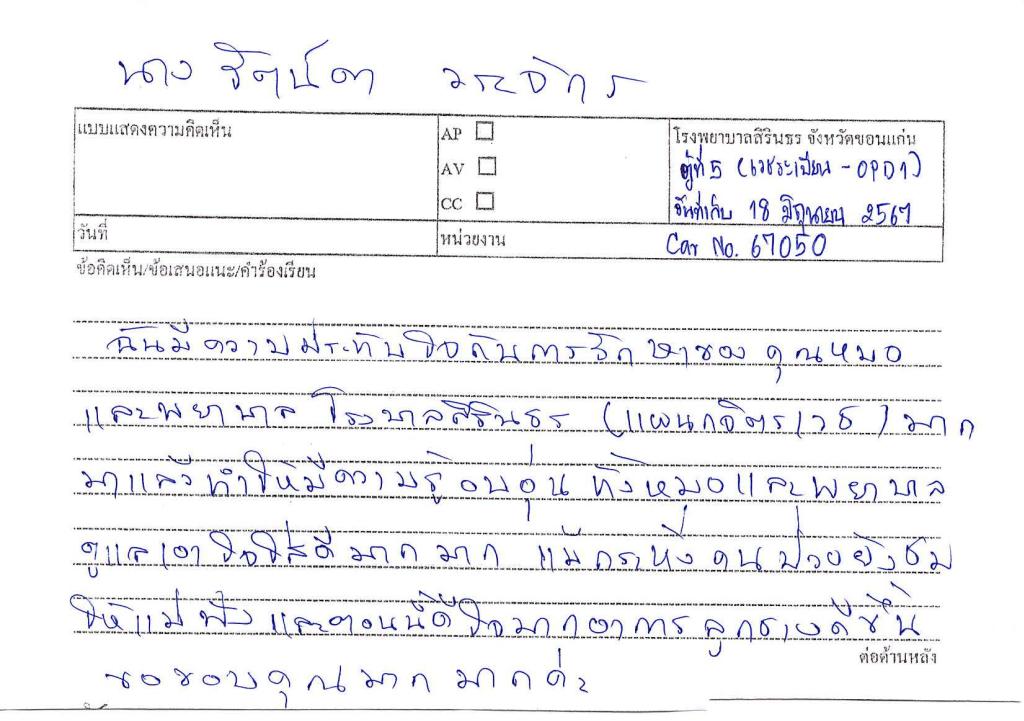 นาง รัตน์ดา วรจักร
แบบแสดงความคิดเห็น
AP
AV
CC
โรงพยาบาลสิรินธร จังหวัดขอนแก่น
ตู้ที่ 5 (เวชระเบียน - OPD1)
วันที่เก็บ 18 มิถุนายน 2567
วันที่
หน่วยงาน
Car No. 67050
ข้อคิดเห็น/ข้อเสนอแนะ/คำร้องเรียน
ฉันมีความประทับใจกับการรักษาของคุณหมอ
และพยาบาล โรงบาลสิรินธร (แผนกจิตรเวช) มาก
มาแล้วทำให้มีความรู้อบอุ่น ทั้งหมอและพยาบาล
ดูแลเอาใจใส่ดีมากมาก แม้กระทั่งคนป่วยยังชม
ให้แม่ฟัง และตอนนี้ดีใจมากอาการลูกชายดีขึ้น
ต่อด้านหลัง
ขอขอบคุณมากมากค่ะ